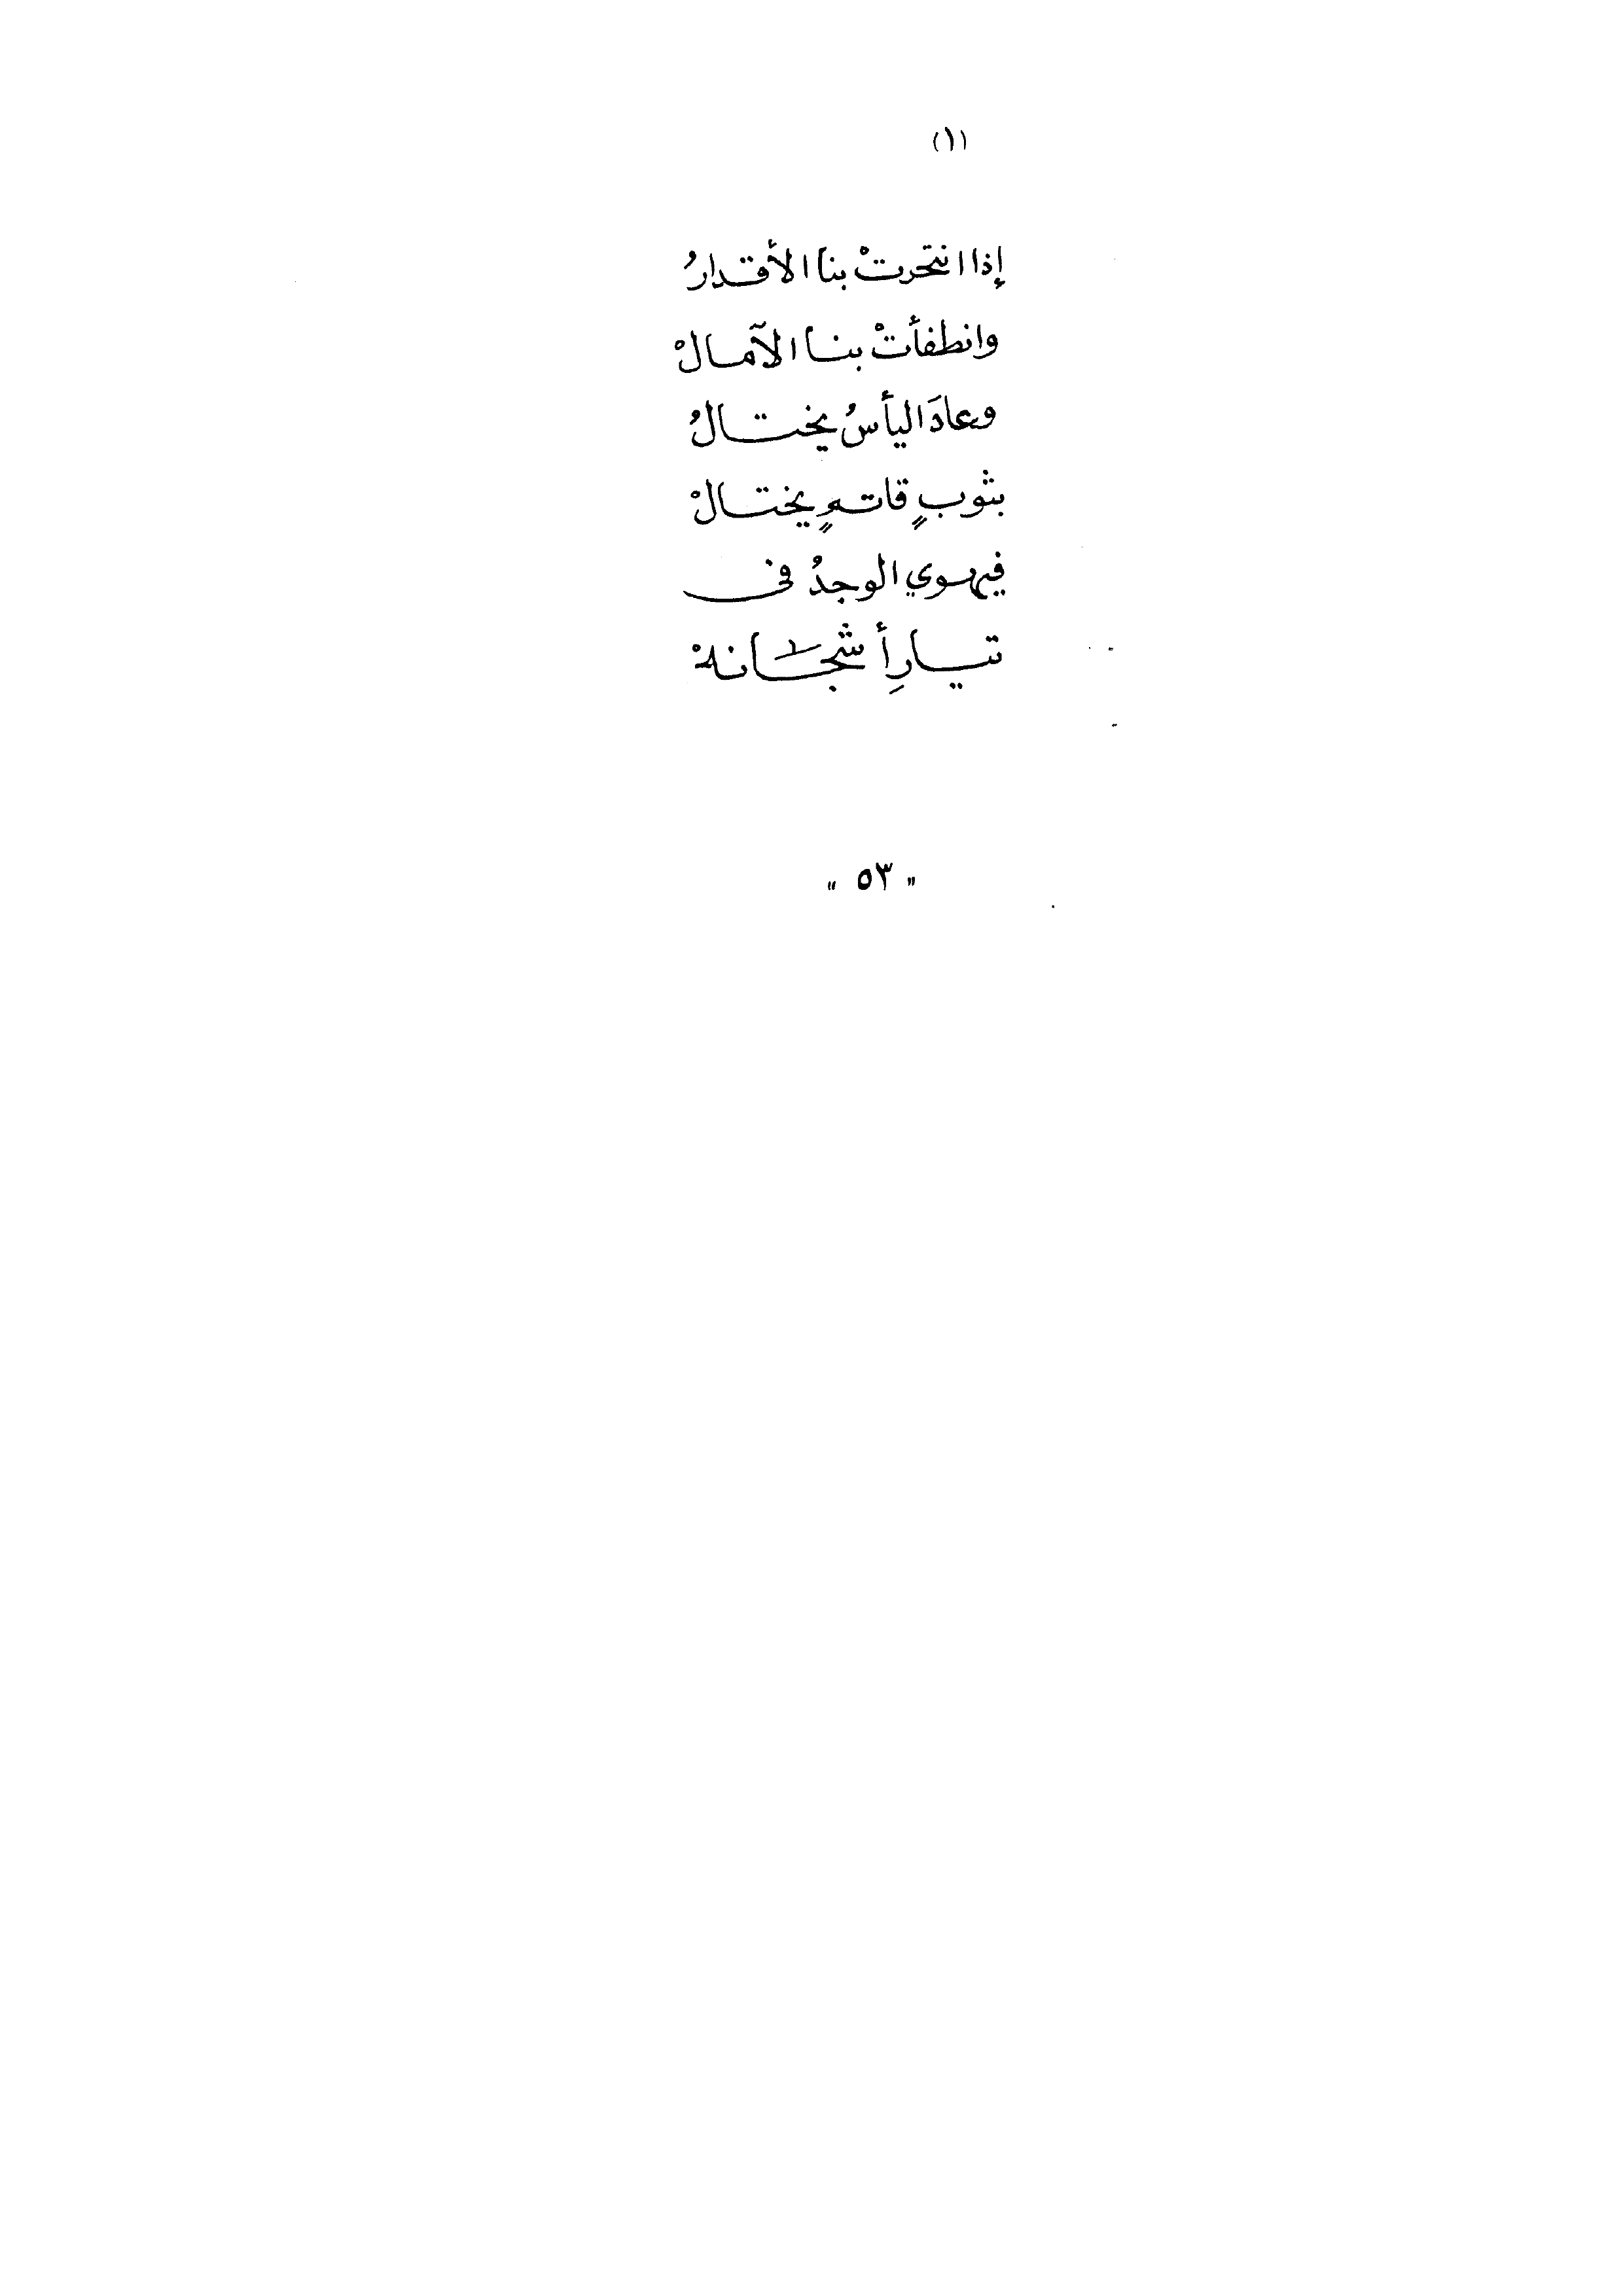 (١)
إذا انتحرتْ بنا الأقدارُ
وانطفأتْ بنا الآمالْ
وعادَ اليأسُ يختالُ
بثوبٍ قاتمٍ يختالْ
فيهوي الوجدُ في
تيارِ أشجانهْ
" ٥٣ "